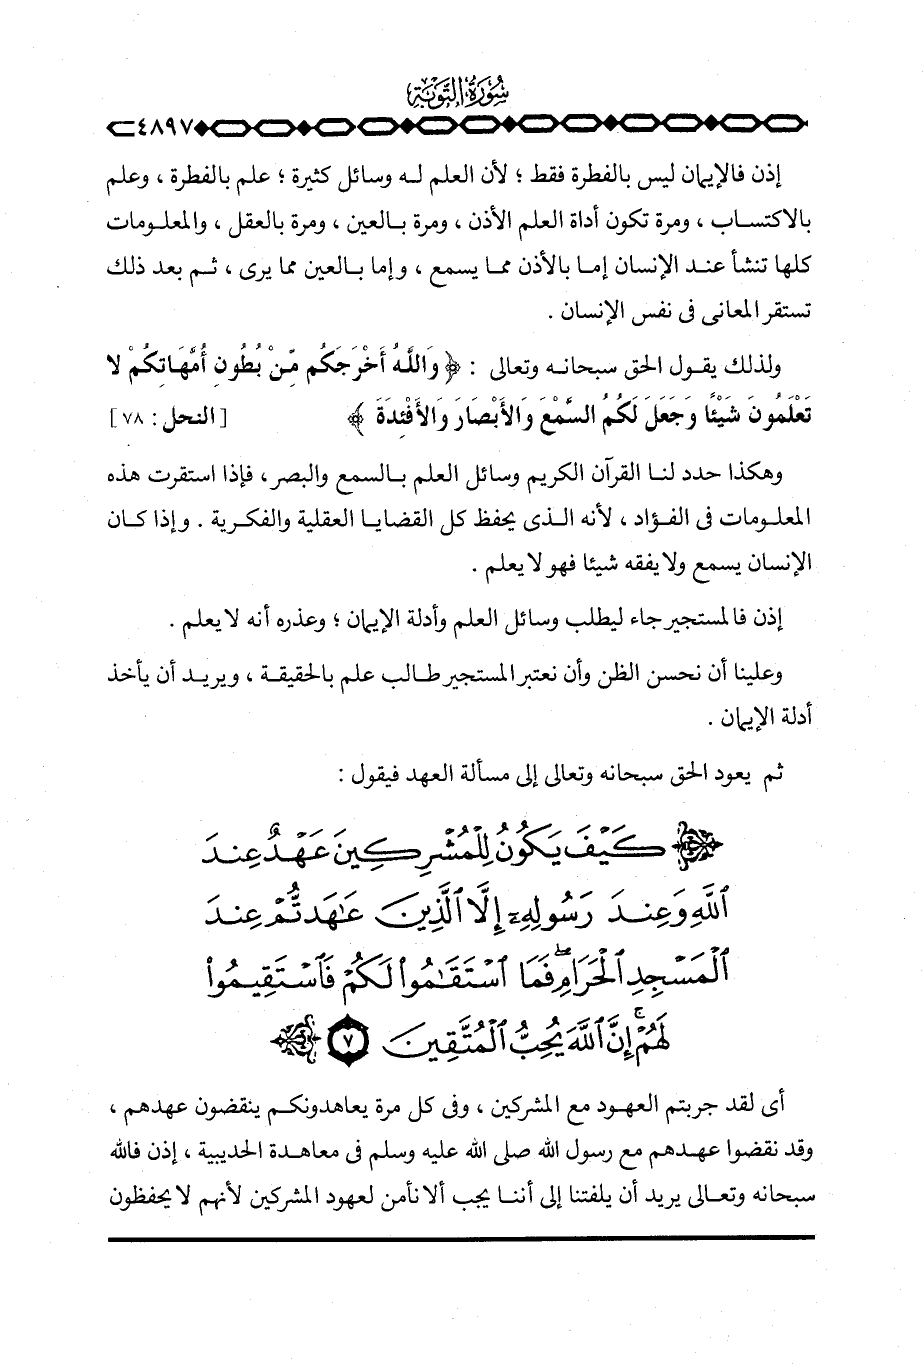 سُورَةُ التَّوْبَةِ
٤٨٩٧
إذن فالإيمان ليس بالفطرة فقط ؛ لأن العلم له وسائل كثيرة ؛ علم بالفطرة ، وعلم
بالاكتساب ، ومرة تكون أداة العلم الأذن ، ومرة بالعين ، ومرة بالعقل ، والمعلومات
كلها تنشأ عند الإنسان إما بالأذن مما يسمع ، وإما بالعين مما يرى ، ثم بعد ذلك
تستقر المعانى فى نفس الإنسان .
ولذلك يقول الحق سبحانه وتعالى : ﴿ وَاللَّهُ أَخْرَجَكُم مِّنْ بُطُونِ أُمَّهَاتِكُمْ لا
تَعْلَمُونَ شَيْئًا وَجَعَلَ لَكُمُ السَّمْعَ وَالأَبْصَارَ وَالأَفْئِدَةَ ﴾ [ النحل : ٧٨ ]
وهكذا حدد لنا القرآن الكريم وسائل العلم بالسمع والبصر، فإذا استقرت هذه
المعلومات فى الفؤاد ، لأنه الذى يحفظ كل القضايا العقلية والفكرية . وإذا كان
الإنسان يسمع ولا يفقه شيئا فهو لا يعلم .
إذن فالمستجير جاء ليطلب وسائل العلم وأدلة الإيمان ؛ وعذره أنه لا يعلم .
وعلينا أن نحسن الظن وأن نعتبر المستجير طالب علم بالحقيقة ، ويريد أن يأخذ
أدلة الإيمان .
ثم يعود الحق سبحانه وتعالى إلى مسألة العهد فيقول :
كَيْفَ يَكُونُ لِلْمُشْرِكِينَ عَهْدٌ عِندَ
ٱللَّهِ وَعِندَ رَسُولِهِۦٓ إِلَّا ٱلَّذِينَ عَٰهَدتُّمْ عِندَ
ٱلْمَسْجِدِ ٱلْحَرَامِ ۖ فَمَا ٱسْتَقَٰمُوا۟ لَكُمْ فَٱسْتَقِيمُوا۟
لَهُمْ ۚ إِنَّ ٱللَّهَ يُحِبُّ ٱلْمُتَّقِينَ ٧
أى لقد جربتم العهود مع المشركين ، وفى كل مرة يعاهدونكم ينقضون عهدهم ،
وقد نقضوا عهدهم مع رسول الله صلى الله عليه وسلم فى معاهدة الحديبية ، إذن فالله
سبحانه وتعالى يريد أن يلفتنا إلى أننا يجب ألا نأمن لعهود المشركين لأنهم لا يحفظون